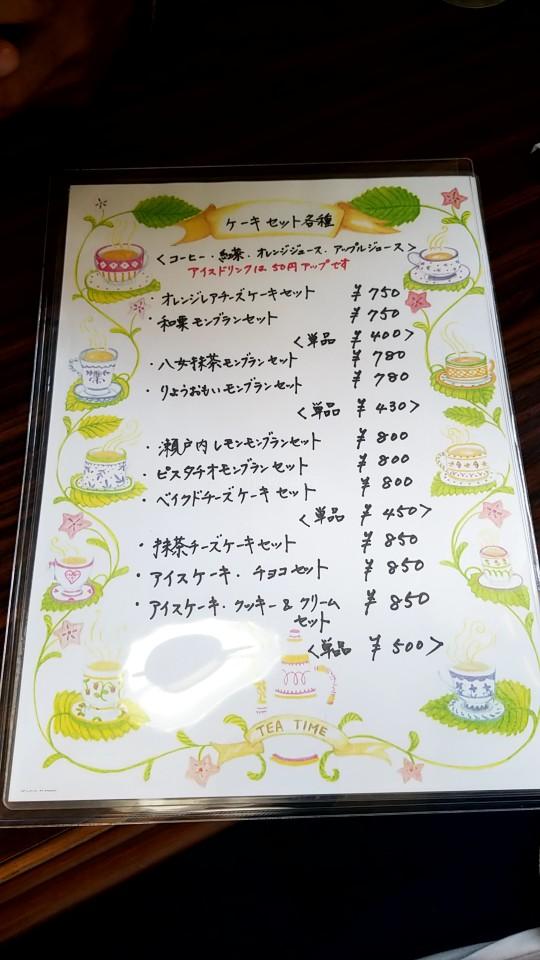 ケーキセット各種
<コーヒー・紅茶・オレンジジュース・アップルジュース>
アイスドリンクは50円アップです
・オレンジレアチーズケーキセット ¥750
・和栗モンブランセット ¥750
<単品 ¥400>
・八女抹茶モンブランセット ¥780
・りょうおもいモンブランセット ¥780
<単品 ¥430>
・瀬戸内レモンモンブランセット ¥800
・ピスタチオモンブランセット ¥800
・ベイクドチーズケーキセット ¥800
<単品 ¥450>
・抹茶チーズケーキセット ¥850
・アイスケーキ・チョコセット ¥850
・アイスケーキ・クッキー&クリーム ¥850
セット
<単品 ¥500>
TEA TIME